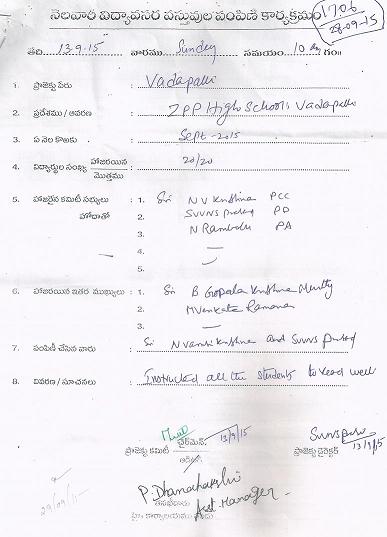 నెలవారి విద్యావసర వస్తువుల పంపిణి కార్యక్రమం
1706
28-09-15
తేది 13.9.15 వారము Sunday సమయం 10 గం॥
1. ప్రాజెక్టు పేరు Vadapalli
2. ప్రదేశము / ఆవరణ ZPP High School: Vadapalli
3. ఏ నెల కొఱకు Sept-2015
4. విద్యార్థుల సంఖ్య హాజరయిన / మొత్తము 20/20
5. హాజరైన కమిటీ సభ్యులు : 1. Sri N V Krishna PCC
హోదాతో 2. SVVNS Prasad PD
3. N Rambabu PA
4. —
5.
6. హాజరయిన ఇతర ముఖ్యులు : 1. Sri B Gopala Krishna Murthy
2. M Venkata Ramana
3. —
7. పంపిణీ చేసిన వారు Sri N Vamsi Krishna and SVVNS Prasad
8. వివరణ / సూచనలు Instructed all the students to read well
ప్రాజెక్టు కమిటీ ఛైర్మెన్, 13/9/15
ప్రాజెక్టు డైరెక్టర్ 13/9/15
ఆడిటర్
P. Dhanalakshmi
Asst. Manager
29/09/15